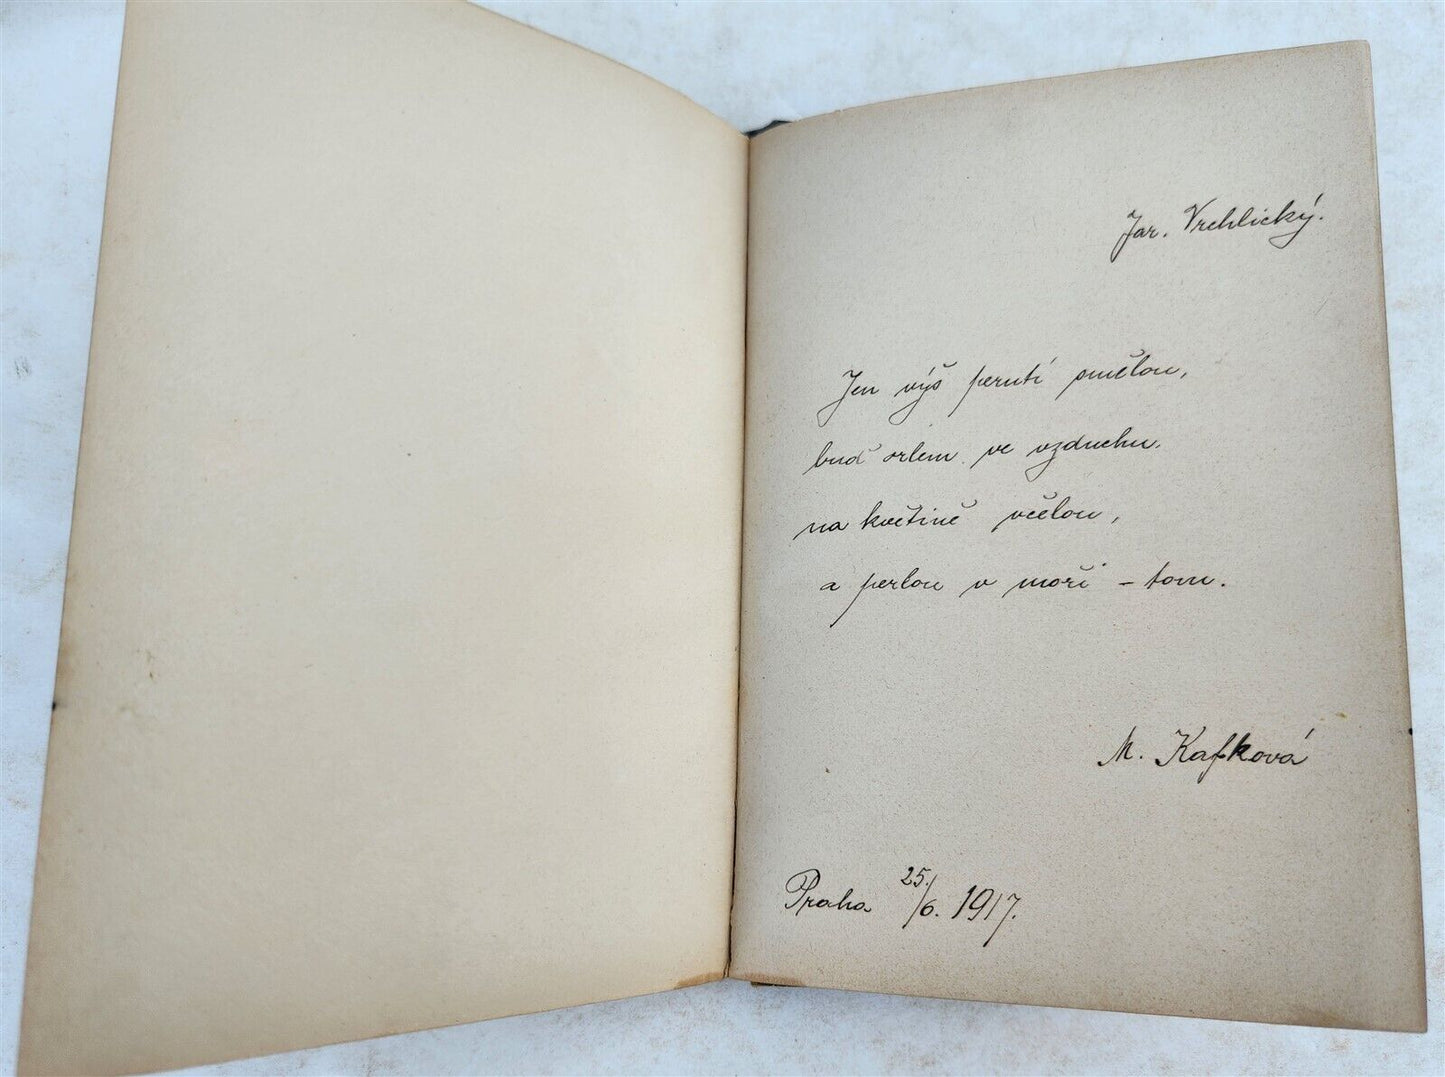 Jar. Vrchlický.
Jen výš perutí smělou,
buď orlem ve vzduchu.
na květině včelou,
a perlou v moři – tou.
M. Kafková
Praha 25./6. 1917.